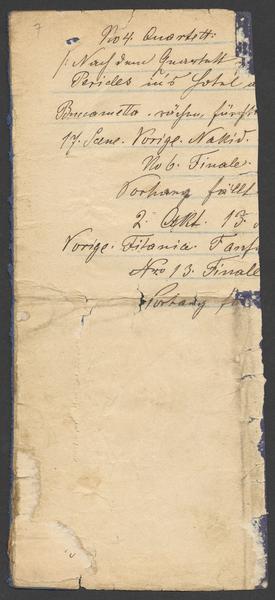 7
No 4. Quartett:
/: Nach dem Quartett
Pericles ins Hotel a
rächen, fürcht
17. Scene. Vorige. Nakid.
No 6. Finale.
Vorhang fällt
2. Akt. 13.
Vorige. Titania. Fanf
Nro 13. Finale
Vorhang fä